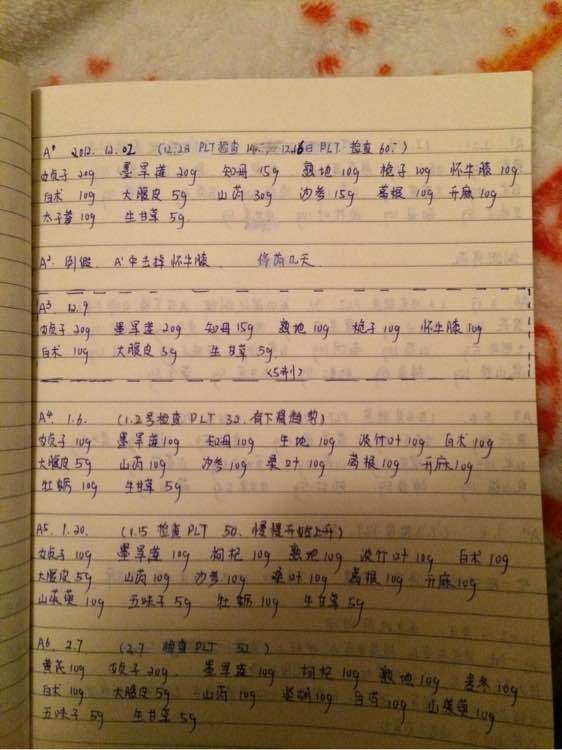 A¹ 2012.12.02 (12.2日 PLT 检查 14 12.16日 PLT 检查 60)
女贞子 20g 墨旱莲 20g 知母 15g 熟地 10g 栀子 10g 怀牛膝 10g
白术 10g 大腹皮 5g 山药 30g 沙参 15g 葛根 10g 升麻 10g
太子参 10g 生甘草 5g
A² 例假. A¹中去掉怀牛膝. 停药几天
A³ 12.9
女贞子 20g 墨旱莲 20g 知母 15g 熟地 10g 栀子 10g 怀牛膝 10g
白术 10g 大腹皮 5g 生甘草 5g
<5剂>
A⁴ 1.6. (1.2号检查 PLT 32. 有下降趋势)
女贞子 10g 墨旱莲 10g 知母 10g 生地 10g 淡竹叶 10g 白术 10g
大腹皮 5g 山药 10g 沙参 10g 桑叶 10g 葛根 10g 升麻 10g
牡蛎 10g 生甘草 5g
A5 1.20. (1.15 检查 PLT 50. 慢慢开始上升)
女贞子 10g 墨旱莲 10g 枸杞 10g 熟地 10g 淡竹叶 10g 白术 10g
大腹皮 5g 山药 10g 沙参 10g 桑叶 10g 葛根 10g 升麻 10g
山萸萸 10g 五味子 5g 牡蛎 10g 生甘草 5g
A6 2.7 (2.7 检查 PLT 52)
黄芪 10g 女贞子 20g 墨旱莲 10g 枸杞 10g 熟地 10g 10g
白术 10g 大腹皮 5g 山药 10g 柴胡 10g 白芍 10g 山萸萸 10g
五味子 5g 生甘草 5g